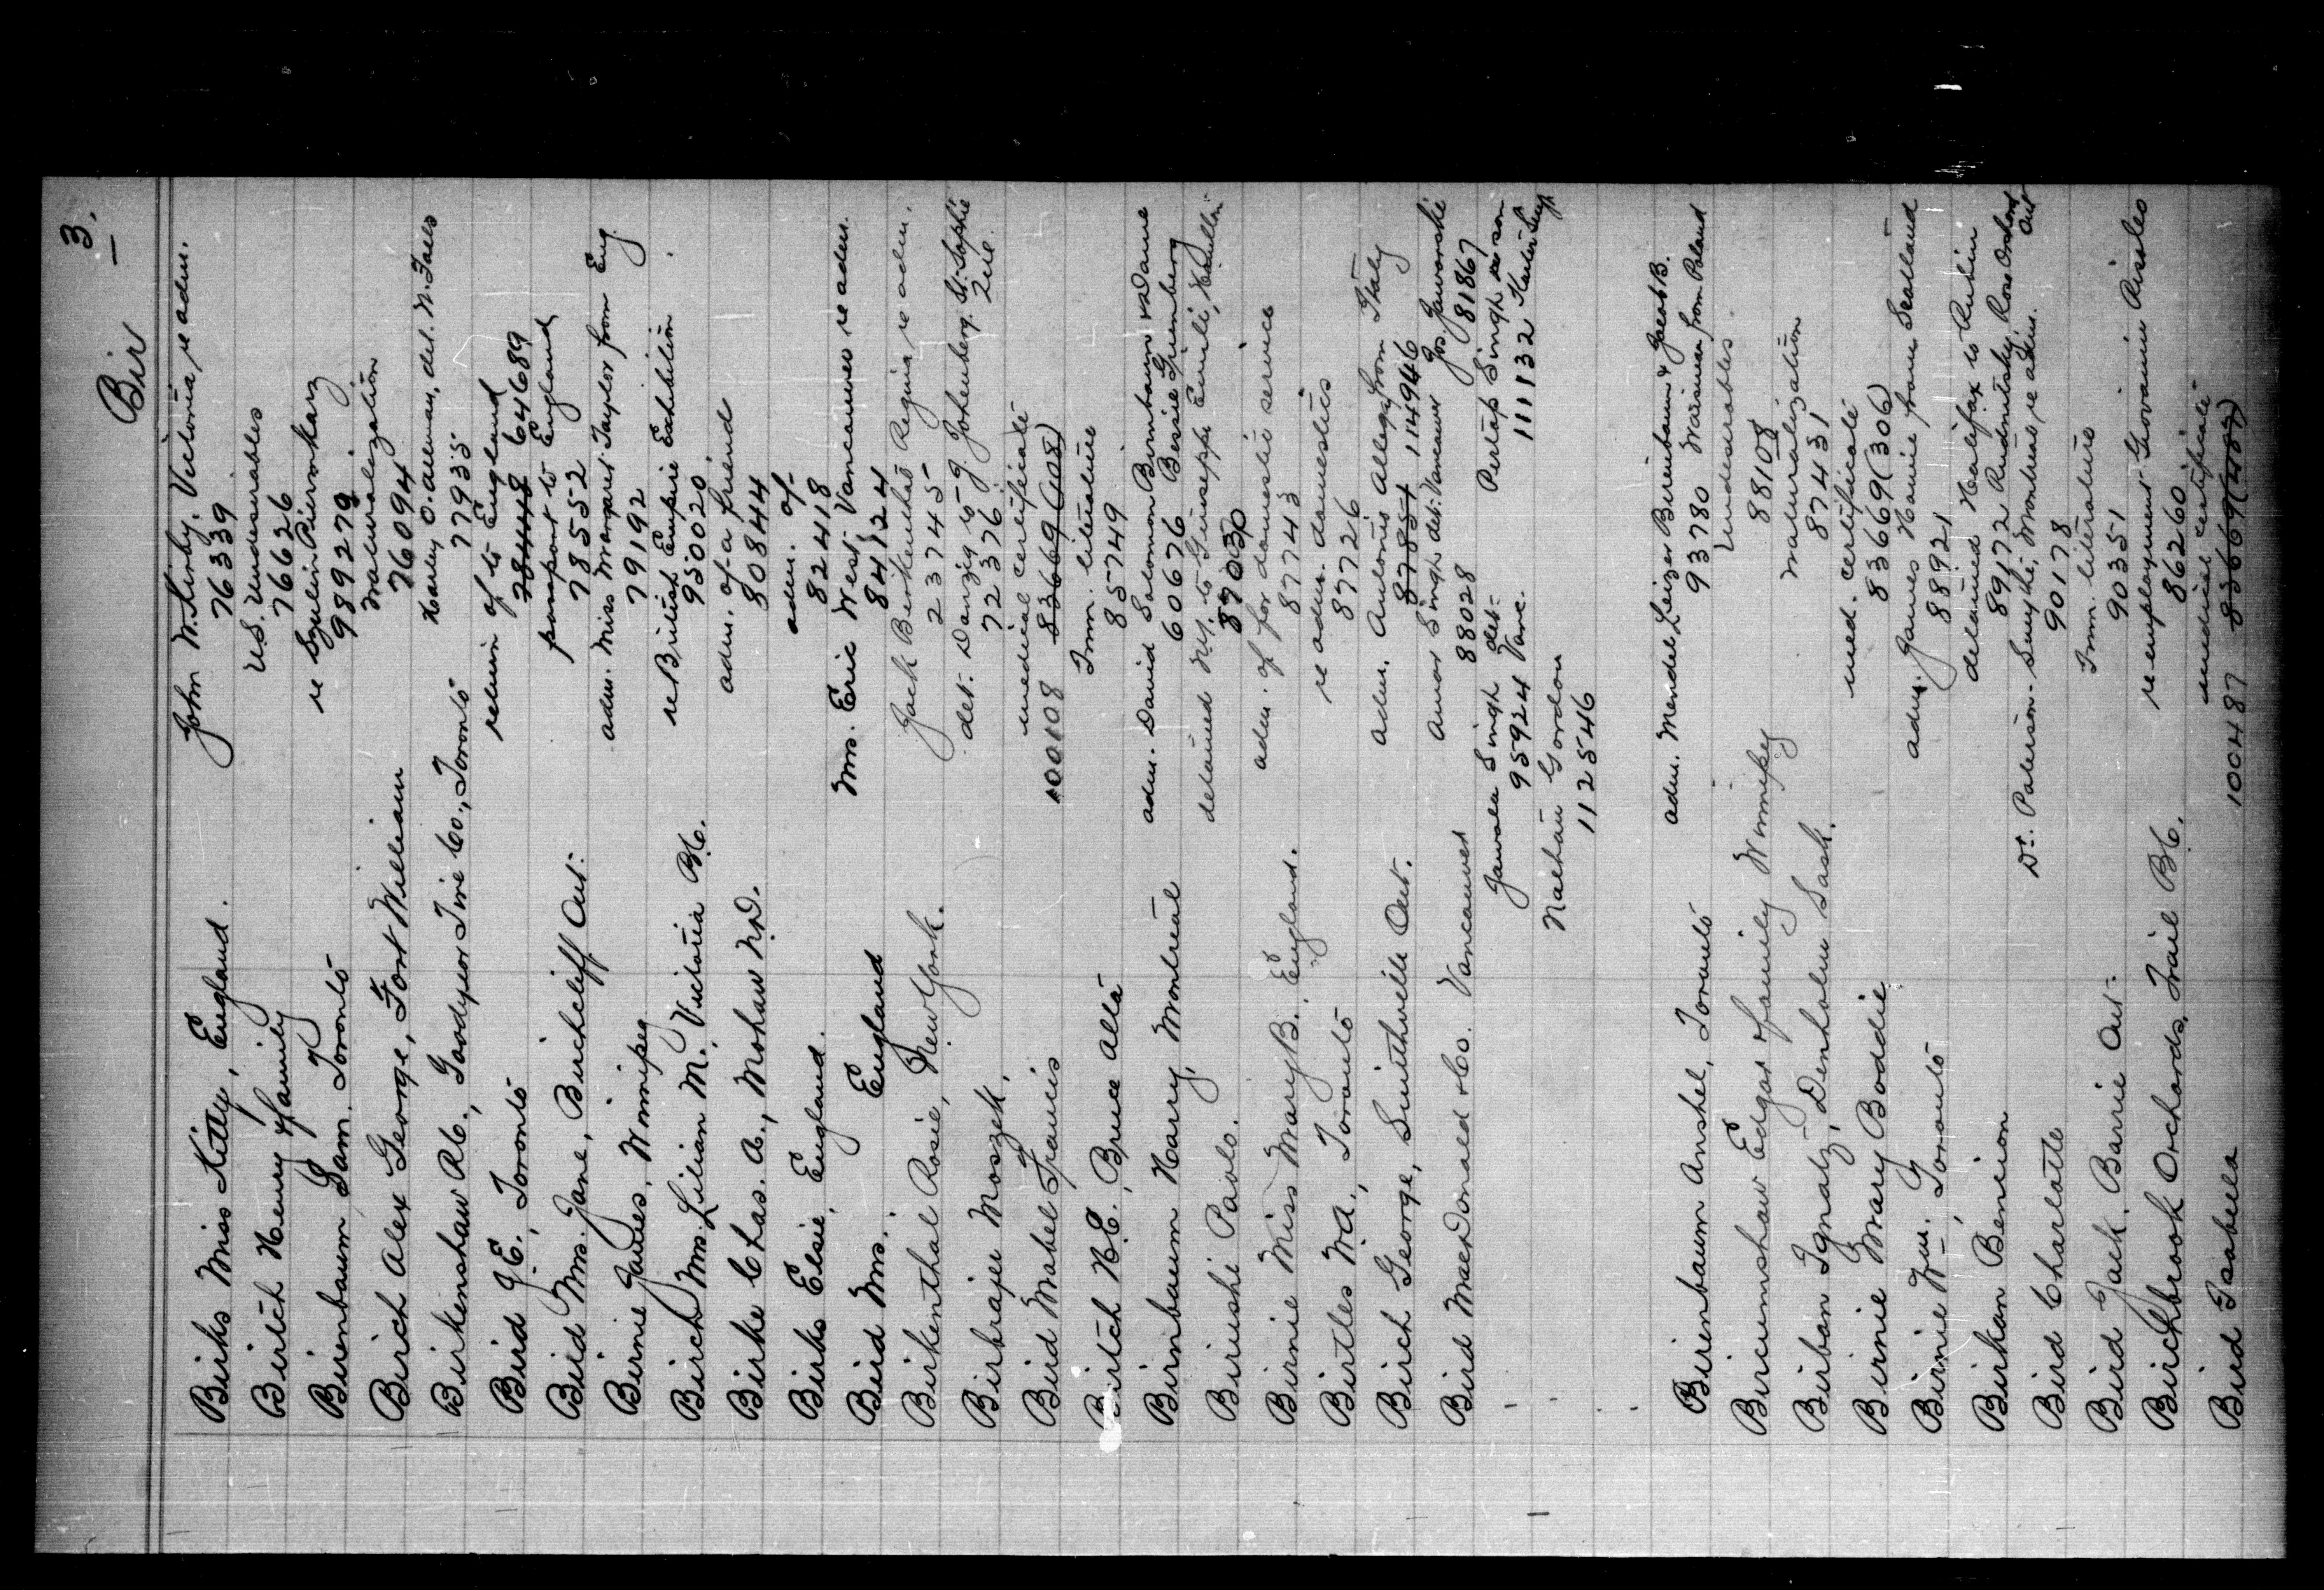 3.
Bir
Birks Miss Kitty, England. John W. Sirby, Victoria, re adm.
76339
Birtch Henry & family U.S. Undesirables
76626
Birenbaum Sam. Toronto re Szulim Piwowarz
989279
Birch Alex George, Fort William Naturalization
76094
Birkenshaw R.C., Goodyear Tire Co., Toronto Harley O. det. N. Falls
77935
Bird J.E., Toronto return of to England
78448 64689
Bird Mrs. Jane, Birchcliff Ont. passport to England
78552
Birnie James, Winnipeg adm. Miss Margaret Taylor from Eng.
79192
Birch Mrs. Lilian M., Victoria B.C. re British Empire Exhibition
950020
Birke Chas. A., Mohaw N.D. adm. of a friend
80844
Birks Elsie, England. adm. of
82418
Bird Mrs. England Mrs. Eric West Vancouver re adm.
84124
Birkenthal Rosie, New York. Jack Birkenthal Regina re adm.
223745
Birbrajer Moszek. det. Danzig to J. Johenberg. St. Sophie
722376
Bird Mabel Francis medical certificate
100108 83669 (108)
Birtch H.E. Bruce Alta Imm. literature
85749
Birnbaum Harry, Montreal adm. David Solomon Birnbaum & Dame
60676 Bessie Grunberg
Birushi Paolo. detained N.Y. to Giuseppe Emili, Hamilton
87030
Birnie Miss Mary B. England. adm. of for domestic service
87743
Birtles W.A., Toronto re adm. domestics
87726
Birch George, Smithville Ont. adm. Antonio Allega from Italy
87851 114946
Bird MacDonald & Co. Vancouver Amar Singh det. Vancouver Jos Jaworski
88028 81867
Jawala Singh det. Pertap Singh re son
95924 Vanc. 111132
Nathan Gordon
112546
Birenbaum Anshel, Toronto adm. Mendel Leizer Birenbaum & Jacob B.
93780 Waisman from Poland
Bircumshaw Edgar & family Winnipeg Undesirables
88108
Birban Ignatz, Denholm Sask. Naturalization
87431
Birnie Mary Boddie med. certificate
83669 (306)
Birnie Wm. Toronto adm. James Howie from Scotland
88921
Birkan Bencion detained Halifax to Rubin
89172 Rudnitsky, Rose Orchard Ont
Bird Charlotte Dr. Paterson Smythe, Montreal re adm.
90178
Bird Jack. Barrie Ont. Imm. literature
90351
Birchbrook Orchards, Trail B.C. re employment Giovannin Aisles
86260
Bird Isabella medical certificate
100487 83669 (487)